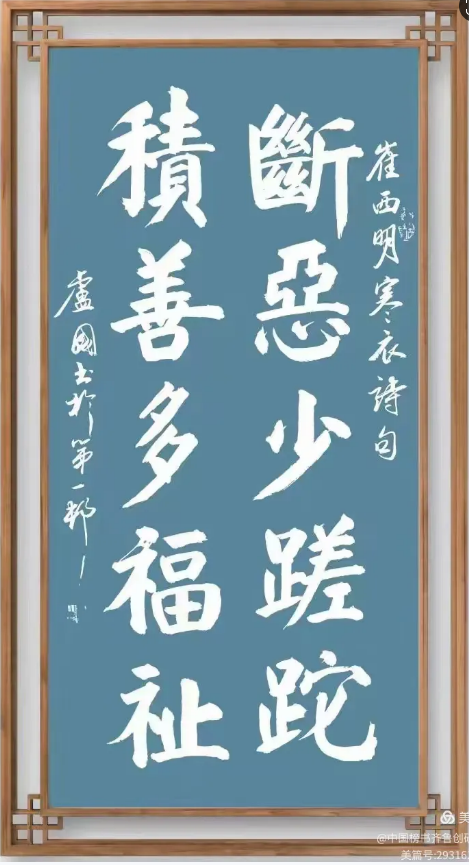 崔西明寒衣詩句
斷惡少蹉跎
積善多福祉
盧國書於第一邨
美
@中国榜书齐鲁创研
美篇号:29316